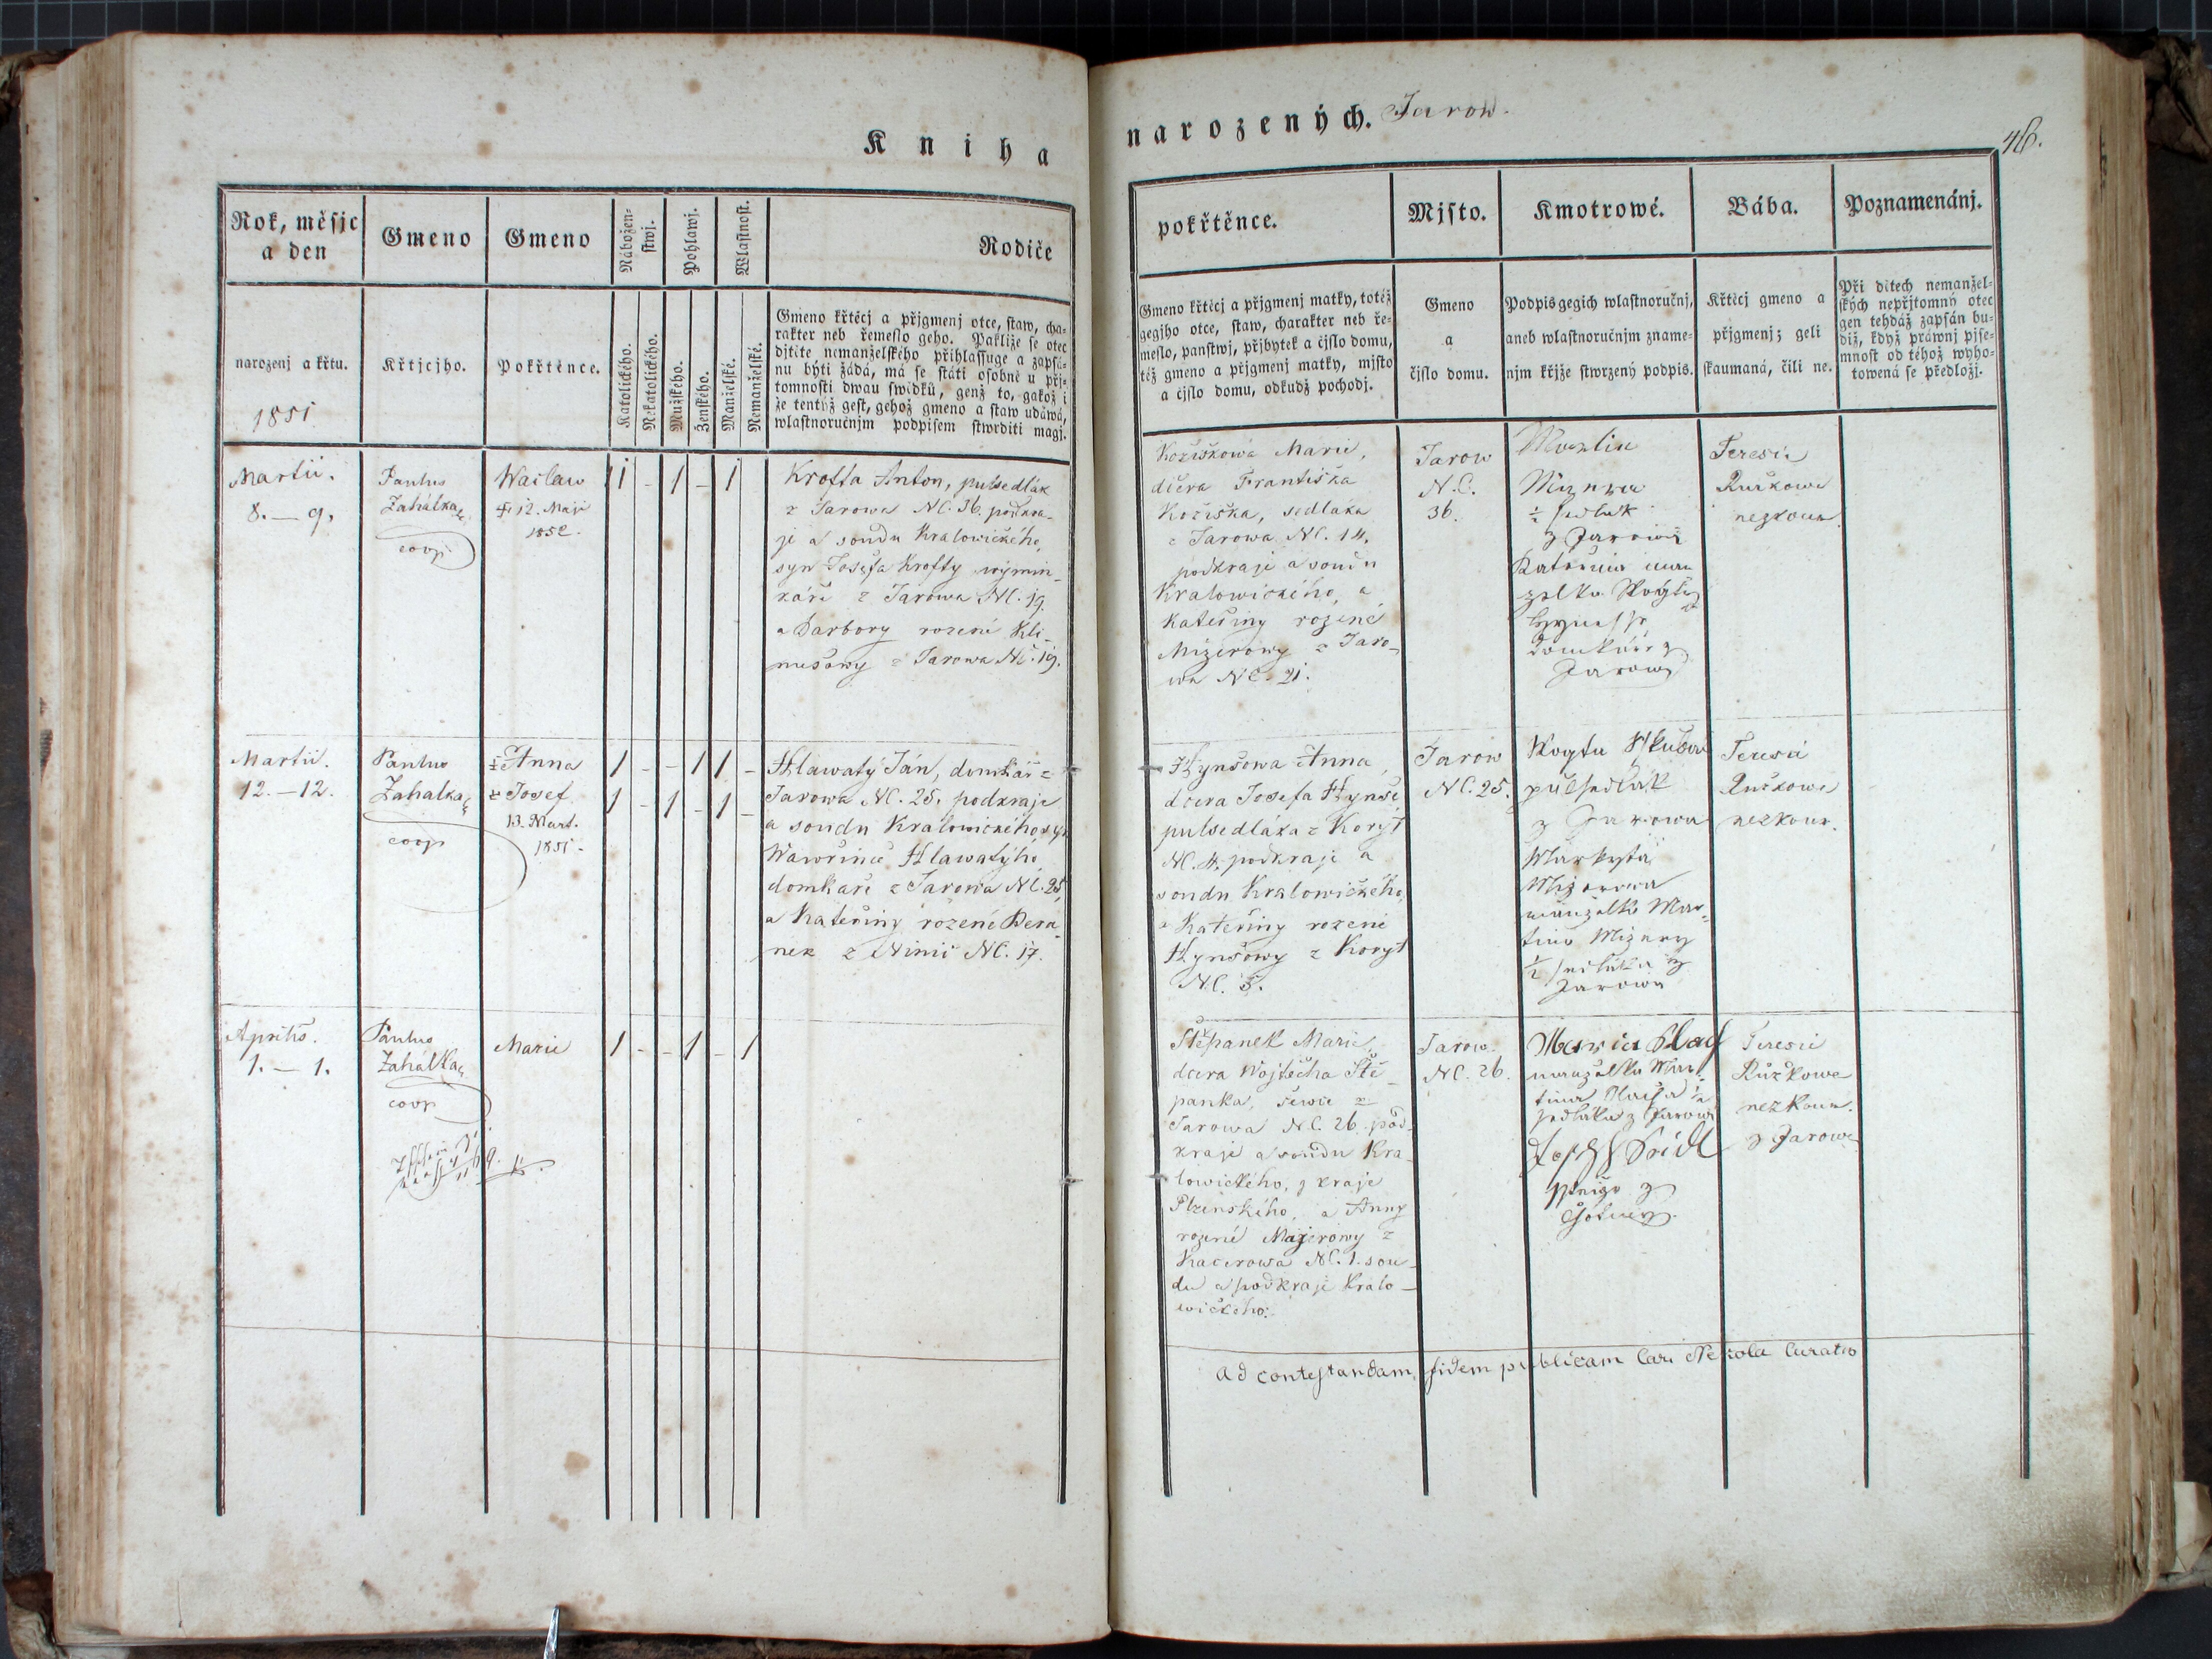 Kniha
narozených. Jarow.
46.
Rok, měsjc
a den
Gmeno
Gmeno
Nábožen-
stwj.
Pohlawj.
Wlastnost.
Rodiče
narozenj a křtu.
1851
Křtjcjho.
Pokřtěnce.
Katolického.
Nekatolického.
Mužského.
Ženského.
Manželské.
Nemanželské.
Gmeno křtěcj a přjgmenj otce, staw, cha-
rakter neb řemeslo geho. Pakliže se otec
djtěte nemanželského přihlassuge a zapsá-
nu býti žádá, má se státi osobně u přj-
tomnosti dwau swědků, genž to, gakož i
že tentýž gest, gehož gmeno a staw udáwá,
wlastnoručnjm podpisem stwrditi magj.
Martii.
8. — 9.
Paulus
Zahálka
coop
Waclaw
12. Maji
1852.
1 - 1 - 1
Krofta Anton, pulsedlák
z Jarowa NC. 36. podkra-
ji a soudu Kralowického,
syn Josefa Krofty wýmin-
káře z Jarowa NC. 19.
a Barbory rozené Kli-
mešowy z Jarowa NC. 19.
Martii.
12. — 12.
Paulus
Zahalka
coop
Anna
Josef
13. Mart.
1851.
1 - - 1 1 -
1 - 1 - 1 -
Hlawatý Ján, domkář z
Jarowa NC. 25. podkraje
a soudu Kralowického, syn
Wawřince Hlawatýho
domkaře z Jarowa NC. 25
a Kateřiny rozené Bera-
nek z NC. 17.
Aprilis.
1. — 1.
Paulus
Zahálka
coop
Marie
1 - - 1 - 1
pokřtěnce.
Mjsto.
Kmotrowé.
Bába.
Poznamenánj.
Gmeno křtěcj a přjgmenj matky, totéž
gegjho otce, staw, charakter neb ře-
meslo, panstwj, přjbytek a čjslo domu,
též gmeno a přjgmenj matky, mjsto
a čjslo domu, odkudž pochodj.
Gmeno
a
čjslo domu.
Podpis gegich wlastnoručnj,
aneb wlastnoručnjm zname-
njm křjže stwrzený podpis.
Křtěcj gmeno a
přjgmenj; geli
skaumaná, čili ne.
Při dětech nemanžel-
ských nepřjtomný otec
gen tehdáž zapsán bu-
diž, když práwnj pjse-
mnost od téhož wyho-
towená se předložj.
Kožiškowa Marie,
dcera Františka
Kožiška, sedláka
z Jarowa NC. 14.
podkraji a soudu
Kralowického, a
Kateřiny rozené
Mizerowy z Jaro-
wa NC. 21.
Jarow
N.C.
36.
Martin
Mizera
½ sedlak
z Jarowa
Kateřina man
zelka
domkáře z
Jarowa
Teresie
Ruzkowa
nezkoum.
Hynšowa Anna,
dcera Josefa Hynše
pulsedláka z Koryt
NC. 4. podkraji a
soudu Kralowického,
a Kateřiny rozené
Hynšowy z Koryt
N.C. 3.
Jarow
NC. 25.
pulsedlák
z Jarowa
Mizerowa
manželka Mar-
tina Mizery
½ sedláka z
Jarowa
Teresie
Ruzkowa
nezkoum.
Štěpanek Marie,
dcera Wojtěcha Ště-
panka, šewce z
Jarowa N.C. 26. pod-
kraje a soudu Kra-
lowického, z kraje
Plzenského, a Anny
rozené Majerowy z
Kacerowa NC. 1. sou-
du a podkraje Kralo-
wického.
Jarow.
NC. 26.
manželka Mar-
tina ½
sedláka z Jarowa
Teresie
Růžkowa
nezkoum.
z Jarowa
Ad contestandam fidem publicam Curatus